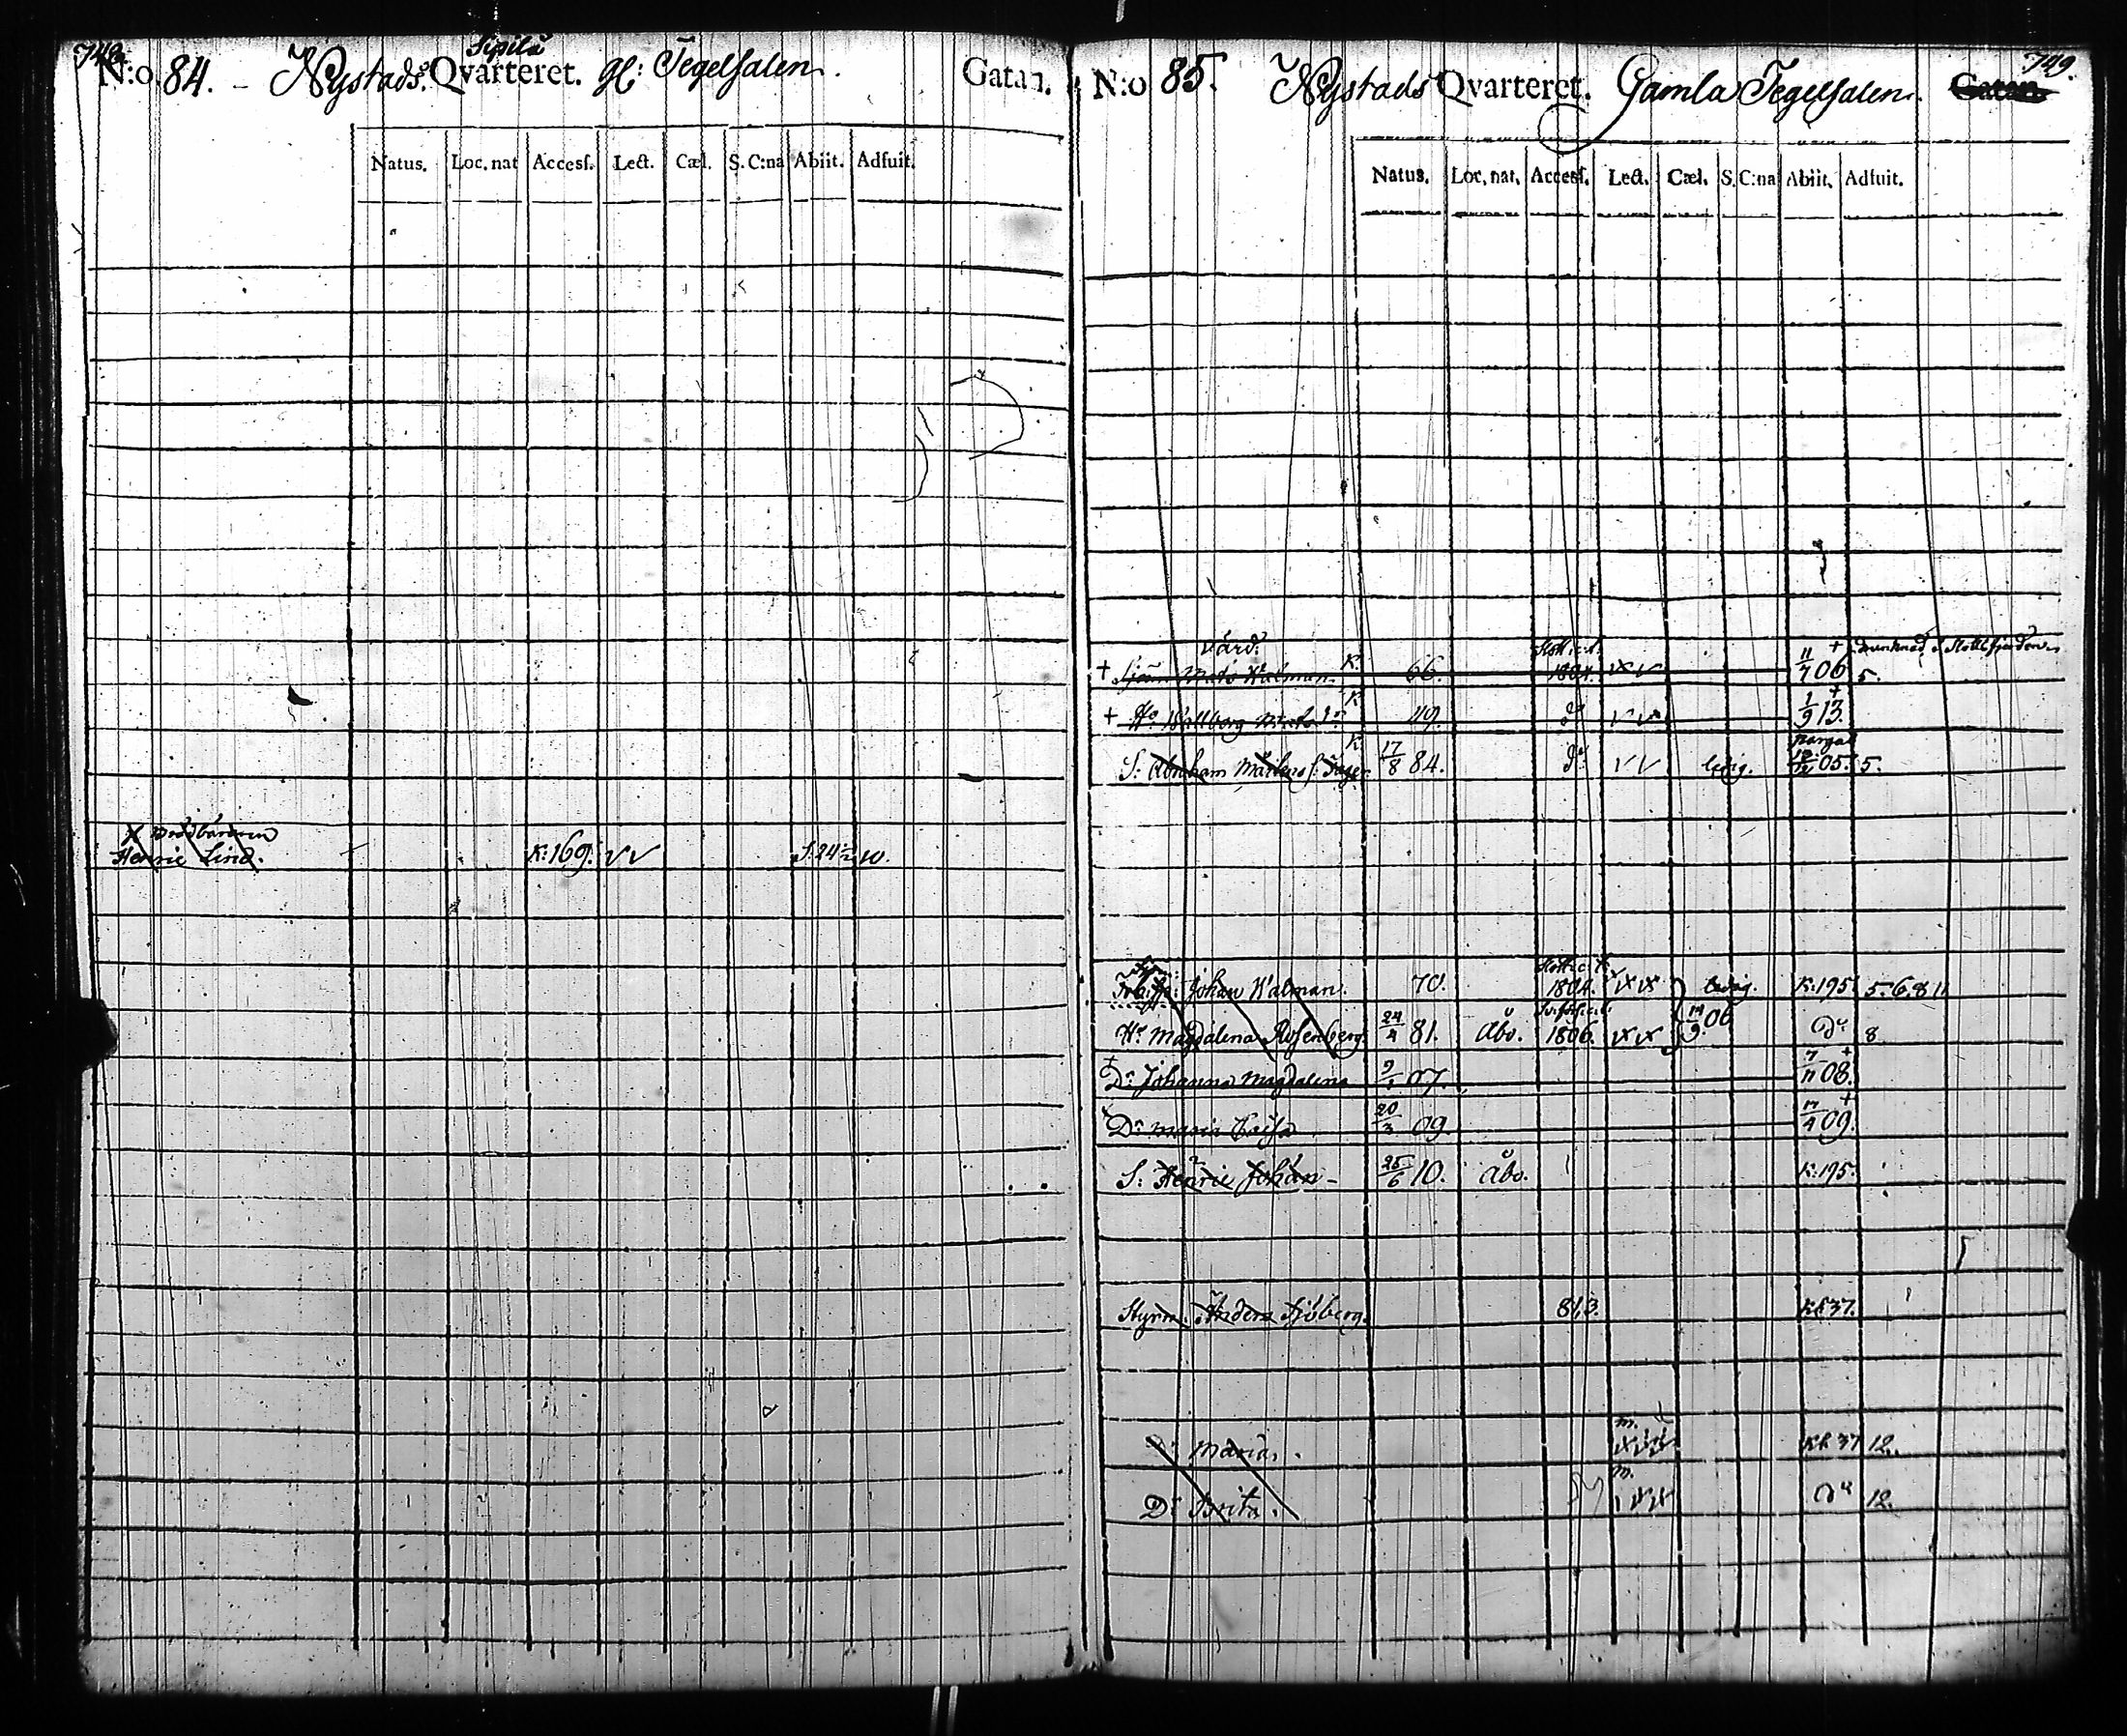 748.
Sipilä
N:o. 84. - Nystads. Qvarteret. gl: Tegelsalen. Gatan.
Natus. Loc. nat Accesſ. Lect. Cæl. S. C:na Abiit. Adfuit.
Henric Lind. K:169. v v S. 24 10.
749.
N:o 85. Nystads Qvarteret. Gamla Tegelsalen. Gatan
Natus. Loc, nat, Accesſ. Lect. Cæl. S. C:na Abiit, Adfuit.
värd. drunknad i Slottsfjärden
+ Sjöm Mats Walman. K. 66. 1804. 11/7 06 + 5.
+ H:u Wallborg Mats d:r K 49. d:o v v 1/9 13. +
Pargas
S: Abraham K. 17/8 84. d:o v v ledig. 05. 5.
Johan Walman. 70. 1804. ledig. K:195. 5. 6. 8. 11
H:u Magdalena Rosenberg. 24/4 81. Åbo. 1806. 06 D:o 8
+ D:r Johanna Magdalena 9/1 07. 7/11 08. +
D:r Maria Caisa 20/3 09 09. +
S: Henric Johan - 25/6 10. Åbo. K:195.
Styrm. Anders Sjöberg. 813. Kk 37.
m.
D: Maria. Kk 37 12.
m.
D:r Brita. D:o 12.